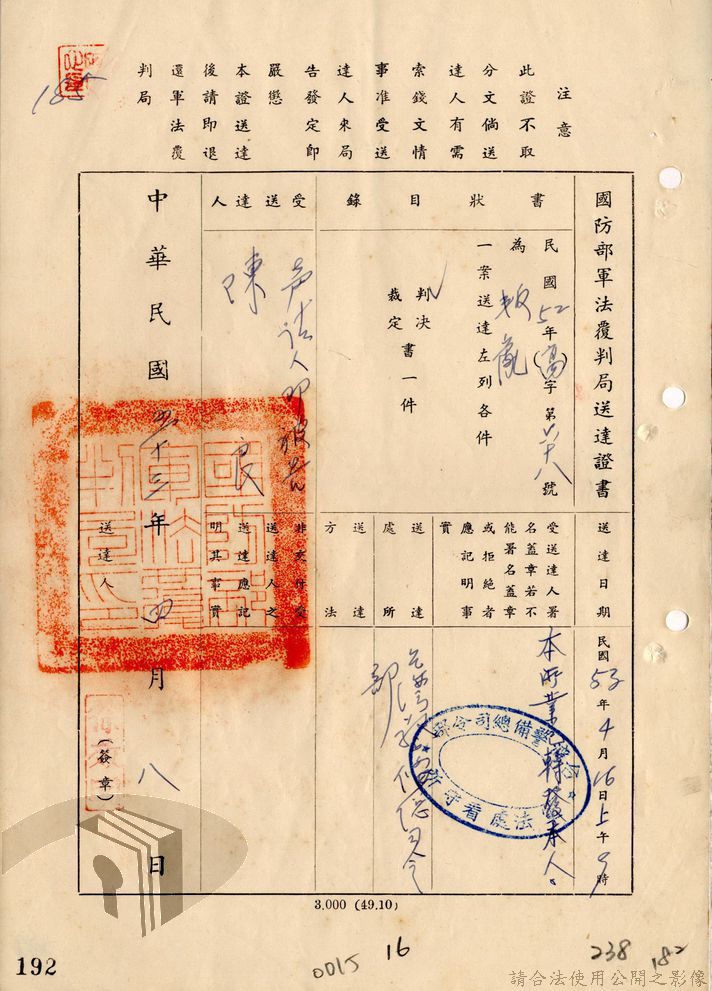 注意
此證不取
分文倘送
達人有需
索錢文情
事准受送
達人來局
告發定即
嚴懲
本證送達
後請即退
還軍法覆
判局
185
國防部軍法覆判局送達證書
書狀目錄
民國52年(高)字第六十八號
為叛亂
一案送達左列各件
判決
裁定
書一件
受送達人
聲請人即被告
陳良
中華民國五十三年四月八日
送達人
(簽章)
送達日期
民國53年4月16日上午9時
受送達人署
名蓋章若不
能署名蓋章
或拒絕者
應記明事
實
本所業已轉發本人。
警備總司令部
軍法處看守所
送達處所
送達方法
非交付受
送達人之
送達應記
明其事實
國防部軍法覆判局印
3.000 (49.10)
192
0015
16
238
182
請合法使用公開之影像